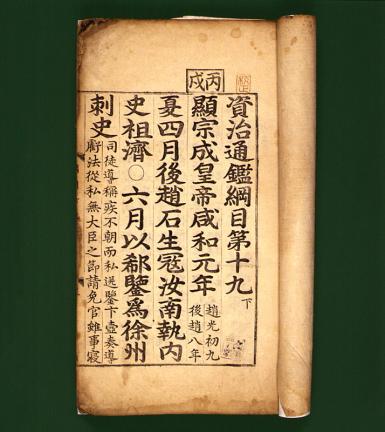 資治通鑑綱目第十九下
丙戌
顯宗成皇帝咸和元年
趙光初九
後趙八年
夏四月後趙石生寇汝南執内
史祖濟〇六月以郗鑒爲徐州
刺史
司徒導稱疾不朝而私送鑒卞壼奏導
虧法從私無大臣之節請免官雖事寢